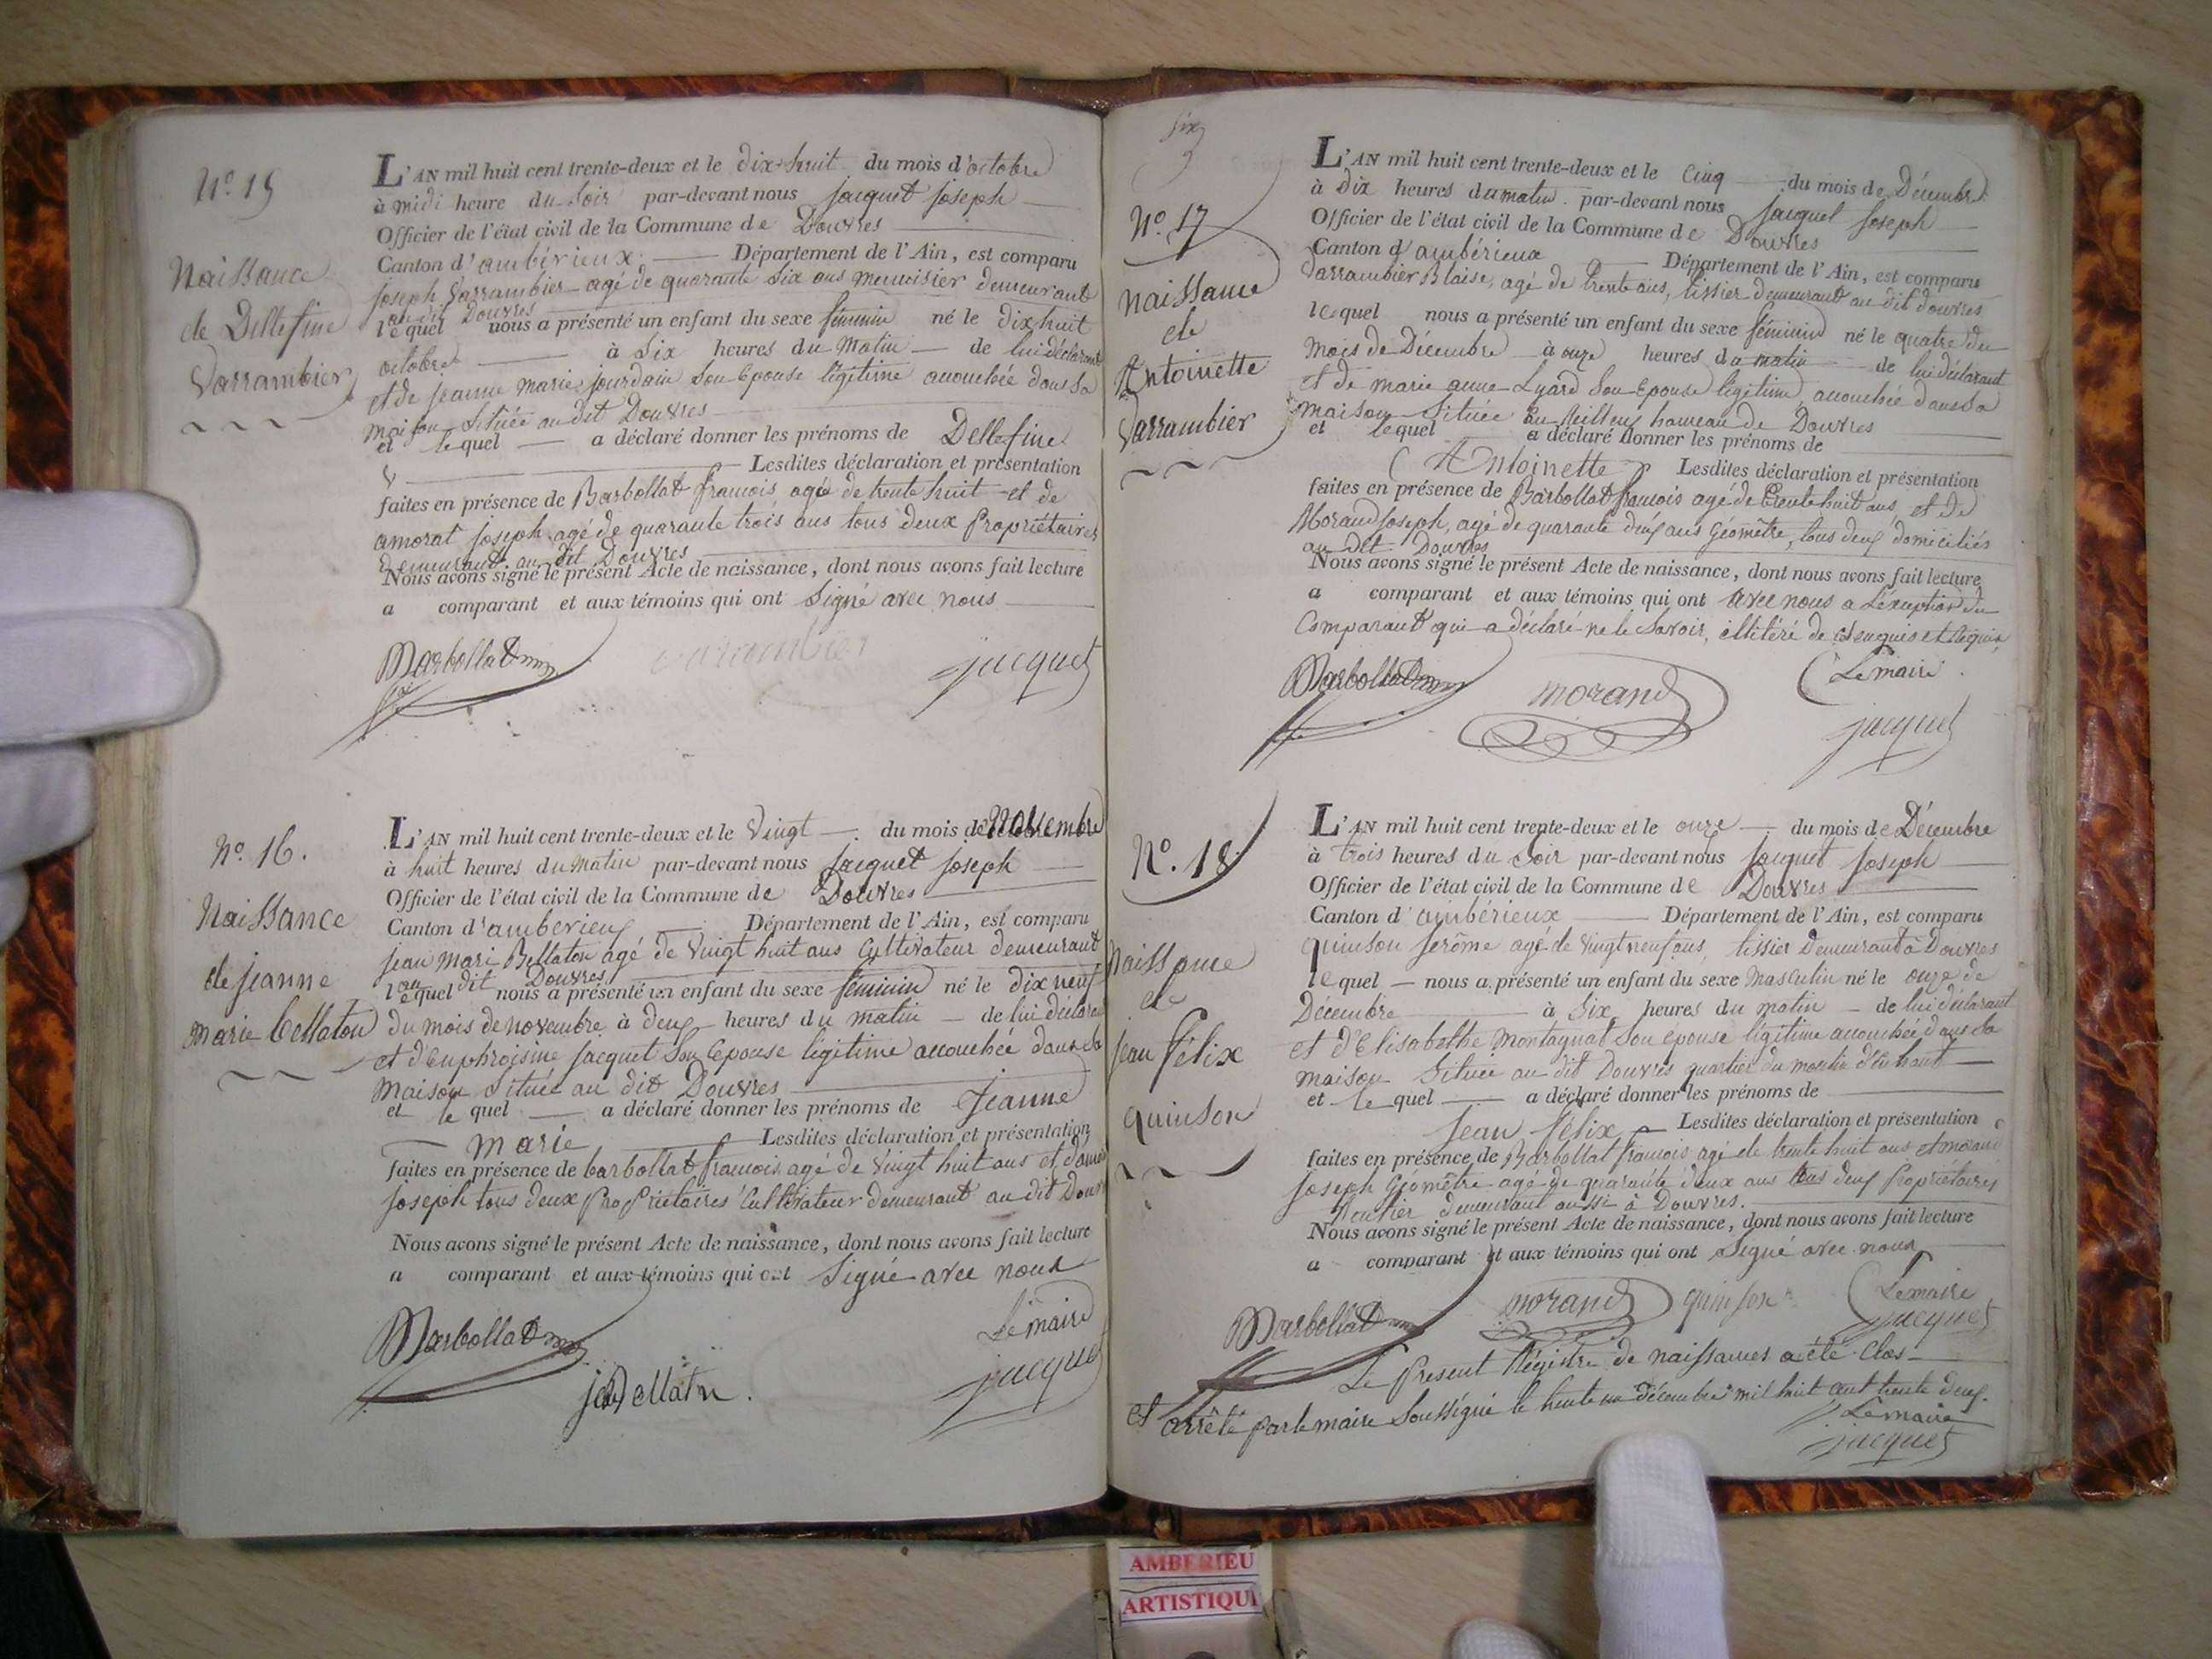 N.° 15
Naissance
de Dellefine
Varrambier
L'AN mil huit cent trente-deux et le dix-huit du mois d'octobre
à midi heure du soir par-devant nous jacquet joseph
Officier de l'état civil de la Commune de Douvres
Canton d'ambérieux Département de l'Ain, est comparu
joseph Varrambier agé de quarante six ans menuisier demeurant
au dit Douvres
lequel nous a présenté un enfant du sexe féminin né le dix huit
octobre à six heures du matin de lui déclarant
et de jeanne marie jourdain son epouse légitime accouchée dans sa
maison située au dit Douvres
et le quel a déclaré donner les prénoms de Dellefine
Lesdites déclaration et présentation
faites en présence de Barbollat francois, agé de trente huit et de
amorat joseph agé de quarante trois ans tous deux Propriétaires
demeurant au dit Douvres
Nous avons signé le présent Acte de naissance, dont nous avons fait lecture
a comparant et aux témoins qui ont signé avec nous
Barbollat varambier jacquet
N.° 16.
Naissance
de jeanne
marie bellaton
L'AN mil huit cent trente-deux et le vingt du mois de Novembre
à huit heures du matin par-devant nous jacquet joseph
Officier de l'état civil de la Commune de Douvres
Canton d'amberieux Département de l'Ain, est comparu
jean mari Bellaton agé de vingt huit ans cultivateur demeurant
au dit Douvres
lequel nous a présenté un enfant du sexe féminin né le dix neuf
du mois de novembre à deux heures du matin de lui déclarant
et d'euphroisine jacquet son epouse légitime accouchée dans sa
maison située au dit Douvres
et le quel a déclaré donner les prénoms de jeanne
marie Lesdites déclaration et présentation
faites en présence de barbollat francois agé de vingt huit ans et
joseph tous deux Propriétaires cultivateur demeurant au dit Douvres
Nous avons signé le présent Acte de naissance, dont nous avons fait lecture
a comparant et aux témoins qui ont signé avec nous
Barbollat Le maire
jacquet
six
N.° 17
naissance
de
Antoinette
Varrambier
L'AN mil huit cent trente-deux et le cinq du mois de Décembre
à dix heures du matin par-devant nous jacquet joseph
Officier de l'état civil de la Commune de Douvres
Canton d'ambérieux Département de l'Ain, est comparu
Varrambier Blaise, agé de trente ans, tissier demeurant au dit douvres
lequel nous a présenté un enfant du sexe féminin né le quatre du
mois de Décembre à onze heures du matin de lui déclarant
et de marie anne Lyard son epouse légitime accouchée dans sa
maison située hameau de Douvres
et lequel a déclaré donner les prénoms de
Antoinette Lesdites déclaration et présentation
faites en présence de Barbollat francois agé de trente huit ans, et de
Morand joseph, agé de quarante deux ans Géomètre, tous deux domiciliés
au dit Douvres
Nous avons signé le présent Acte de naissance, dont nous avons fait lecture
a comparant et aux témoins qui ont avec nous a l'exception du
comparant qui a déclaré ne le savoir, illitéré de ce enquis et réquis
Barbollat morand Le maire
jacquet
N.° 18
Naissance
de
jean félix
quinson
L'AN mil huit cent trente-deux et le onze du mois de Décembre
à trois heures du soir par-devant nous jacquet joseph
Officier de l'état civil de la Commune de Douvres
Canton d'ambérieux Département de l'Ain, est comparu
quinson jerôme agé de vingt neuf ans, tissier demeurant à Douvres
lequel nous a présenté un enfant du sexe masculin né le onze de
Décembre à six heures du matin de lui déclarant
et d'Elisabethe montagnat son epouse légitime accouchée dans sa
maison située au dit Douvres quartier du moulin d'en haut
et le quel a déclaré donner les prénoms de
jean félix Lesdites déclaration et présentation
faites en présence de Barbollat francois agé de trente huit ans, et morand
joseph Géomètre agé de quarante deux ans tous deux Propriétaires
rentier demeurant aussi à Douvres.
Nous avons signé le présent Acte de naissance, dont nous avons fait lecture
a comparant et aux témoins qui ont signé avec nous
Barbollat morand quinson Le maire
jacquet
Le Present Régistre de naissances a été clos
et arrêté par le maire soussigné le trente un décembre mil huit cent trente deux.
Le maire
jacquet
AMBERIEU
ARTISTIQU